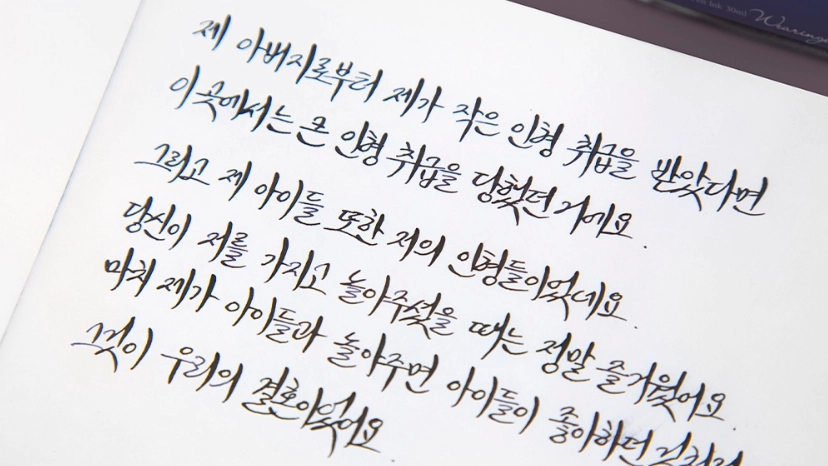 Ink 30ml
Wearing
제 아버지로부터 제가 작은 인형 취급을 받았다면
이 곳에서는 큰 인형 취급을 당했던 거에요.
그리고 제 아이들 또한 저의 인형들이었네요.
당신이 저를 가지고 놀아주셨을 때는 정말 즐거웠어요.
마치 제가 아이들과 놀아주면 아이들이 좋아하던
그것이 우리의 결혼이었어요